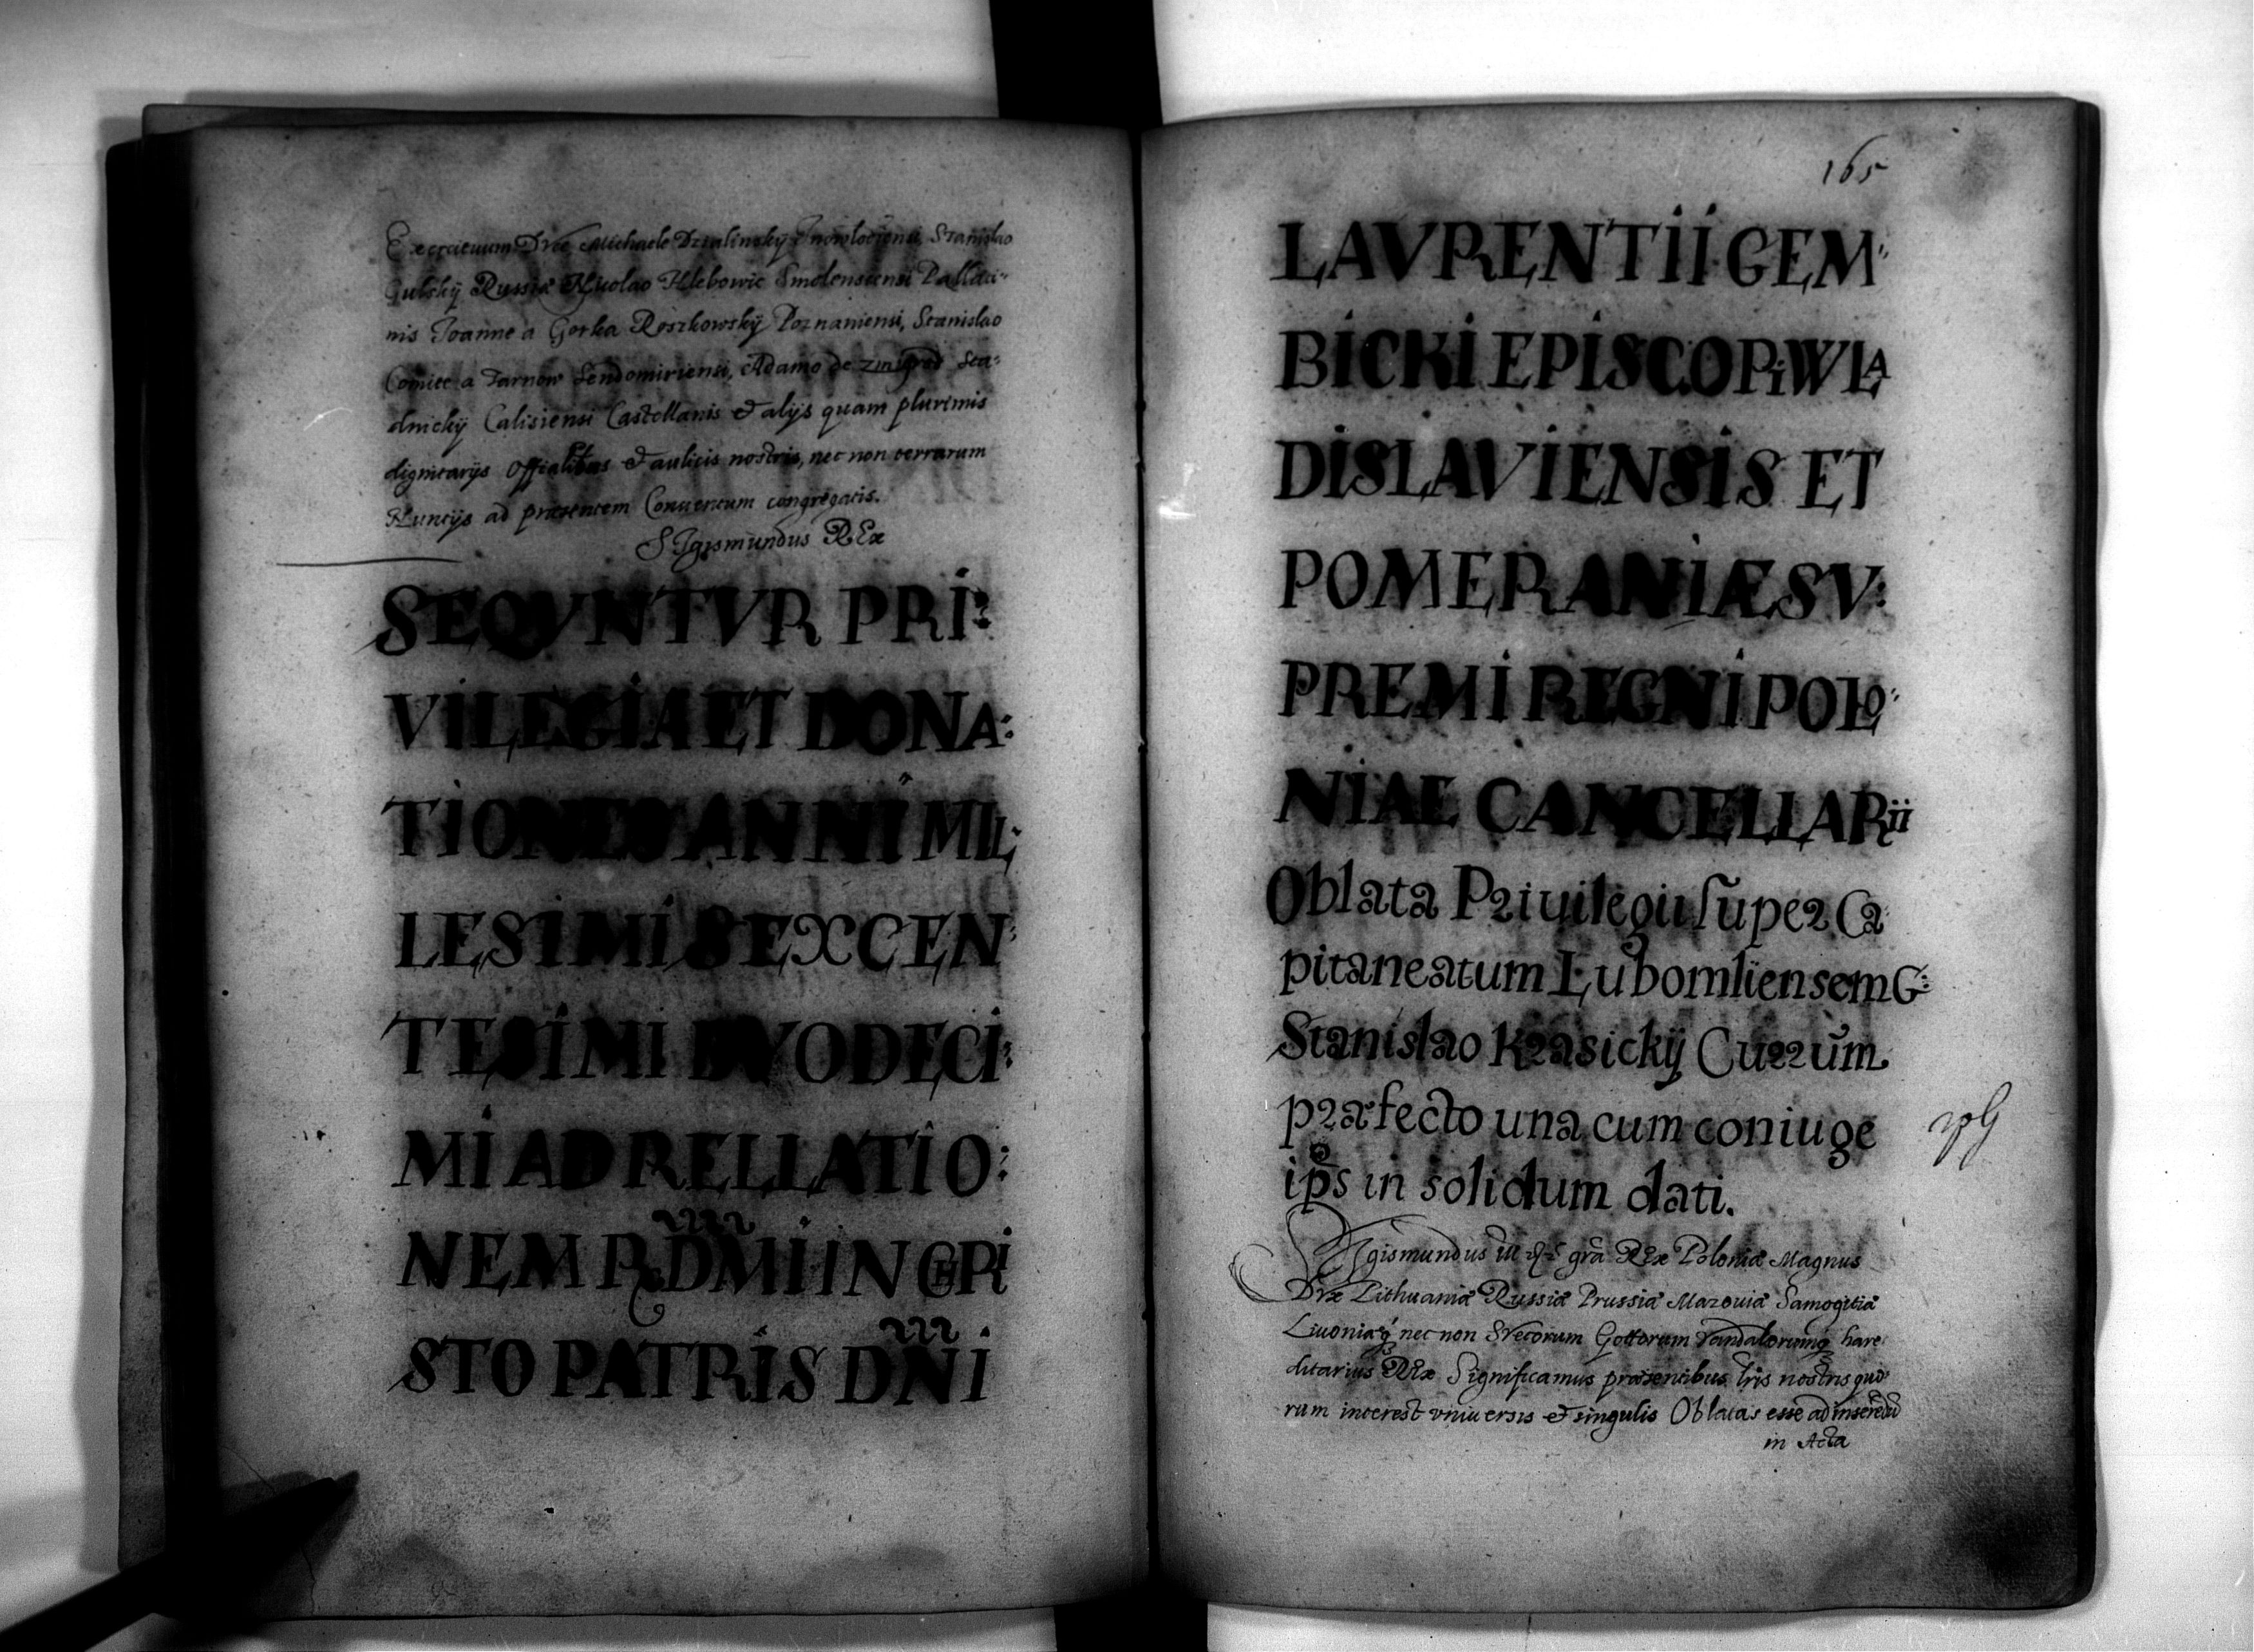 Exercituum Duce Michaele Dzialinsky Inowlodiensi, Stanislao
Gulsky Russiæ Nicolao Hlebowic Smolensiensi Pallati-
nis Joanne a Gorka Roszkowskÿ Poznaniensi, Stanislao
Comite a Tarnow Sendomiriensi, Adamo de zmigrod Sta-
dnickÿ Calisiensi Castellanis et alÿs quam plurimis
dignitarÿs Officialibus et aulicis nostris, nec non terrarum
Nuncÿs ad præsentem Conuentum congregatis.
SIgismundus REx
SEQVNTVR PRI:
VILEGIA ET DONA:
TIONES ANNI MIL:
LESIMI SEXCEN:
TESIMI DVODECI:
MI AD RELLATIO:
NEM R. DMI IN CHRI
STO PATRIS DNI
165
LAVRENTII GEM:
BICKI EPISCOPI WLA
DISLAVIENSIS ET
POMERANIÆ SV:
PREMI REGNI POLO:
NIAE CANCELLARII
Oblata Priuilegii super Ca
pitaneatum Lubomliensem G:
Stanislao Krasickÿ Curruum
præfecto una cum coniuge
ips in solidum dati.
SIgismundus III grã REx Poloniæ Magnus
Dux Lithuaniæ Russiæ Prussiæ Mazouiæ Samogitiæ
Liuoniæq́ nec non Svecorum Gottorum Vandalorumq́ hære
ditarius REx Significamus præsentibus lris nostris quo-
rum interest vniuersis et singulis Oblatas esse ad inserẽdũ
in Acta